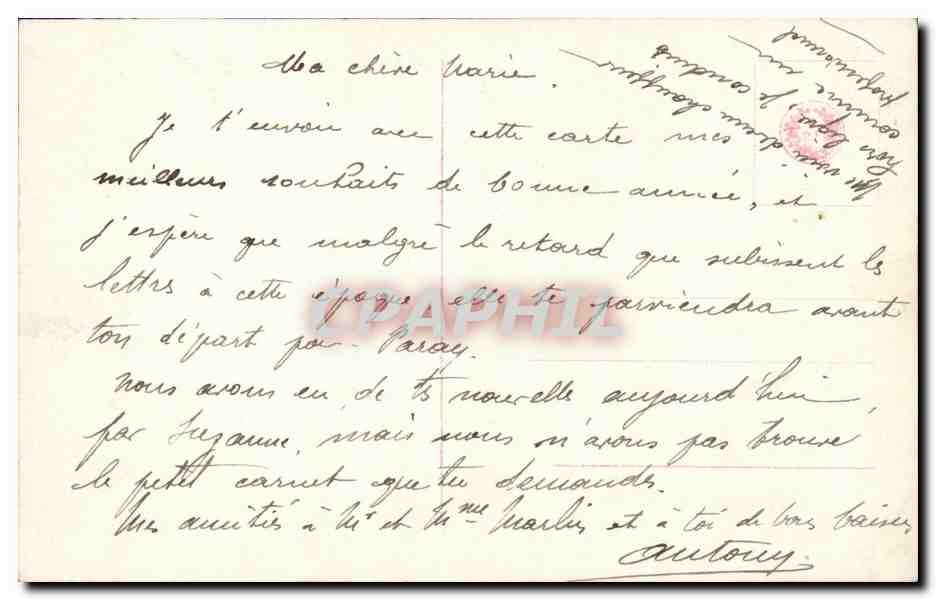 Ma chère Marie.
Je t'envoie avec cette carte mes
meilleurs souhaits de bonne année, et
j'espère que malgré le retard que subissent les
lettres à cette époque, elle te parviendra avant
ton départ pour Paray.
Nous avons eu de tes nouvelle aujourd'hui
par Suzanne, mais nous n'avons pas trouvé
le petit carnet que tu demandes.
Mes amitiés à Mr et Mme Marlin et à toi de bons baisers
Antony.
Me voici devenu chauffeur
je conduis
comme un
professionnel
CPAPHIL